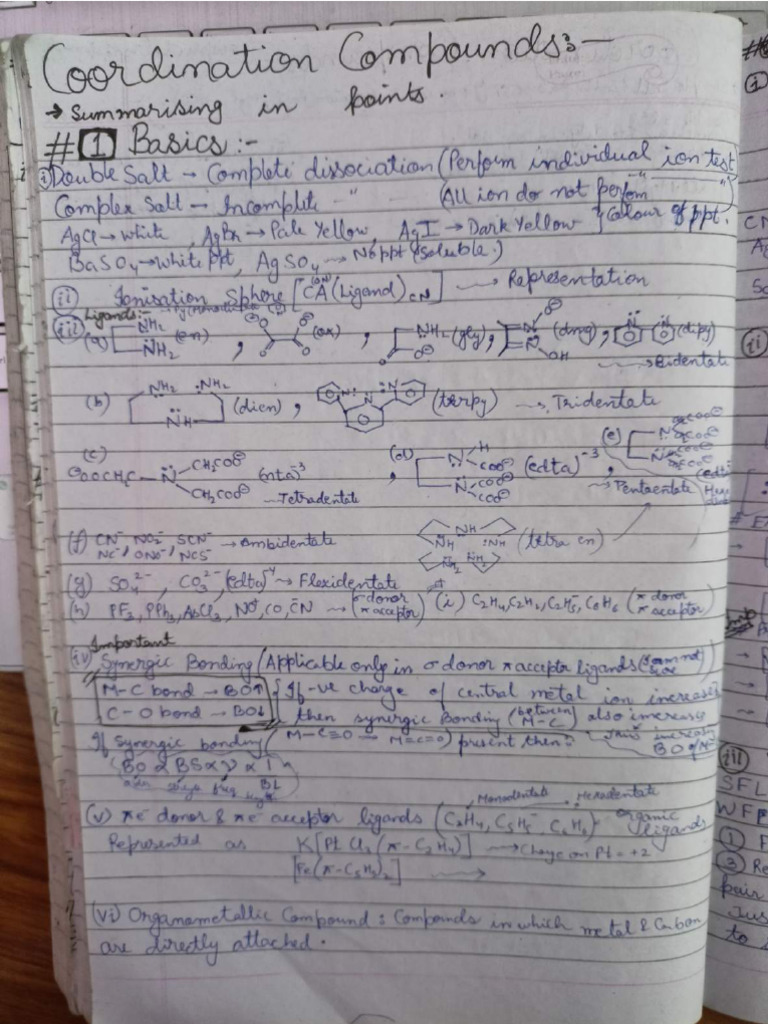 Coordination Compounds:-
→ Summarising in points.
# 1 Basics :-
(i) Double Salt → Complete dissociation (Perform individual ion test)
Complex Salt → Incomplete -"- (All ion do not perform -"-)
AgCl → white, AgBr → Pale Yellow, AgI → Dark Yellow } Colour of ppt.
BaSO4 → white ppt, AgSO4 → No ppt (soluble)
(ii) Ionisation Sphere [CA (Ligand)CN] → Representation
(iii) Ligands:-
(a) NH2 NH2 (en), (ox), NH2 (gly), N N OH (dmg), N N (dipy)
→ Bidentate
(b) NH2 NH2 NH (dien), N N N (terpy) → Tridentate
(c) ⊖OOCH2C N CH2COO⊖ CH2COO⊖ (nta)-3 → Tetradentate
(d) N H COO⊖ N COO⊖ COO⊖ (edta)-3 → Pentaentate
(e) N COO⊖ COO⊖ N COO⊖ COO⊖
(f) CN-, NO2-, SCN- → Ambidentate
NC-, ONO-, NCS-
NH NH NH NH2 NH2 (tetra en)
(g) SO4 2-, CO3 2-, (edta)-4 → Flexidentate
(h) PF3, PPh3, AsCl3, NO+, CO, CN → (σ donor π acceptor) (i) C2H4, C2H2, C2H5-, C6H6 (π donor π acceptor)
Important
(iv) Synergic Bonding (Applicable only in σ donor π acceptor ligands
M-C bond → BO↑
C-O bond → BO↓
If -ve charge of central metal ion increases
then synergic Bonding (between M-C) also increases
If Synergic bonding (M-C≡O M=C=O) present then:
BO ∝ BS ∝ ν ∝ 1/BL
(v) πe- donor & πe- acceptor ligands (C2H4, C5H5-, C6H6) Organic ligands
Monodentate Hexadentate
Represented as K[PtCl3(π-C2H4)] → Charge on Pt = +2
[Fe(π-C5H5)2] →
(vi) Organometallic Compound: Compounds in which metal & Carbon
are directly attached.
(ii)
(iii)
SFL
WFF
pair
Jus
to